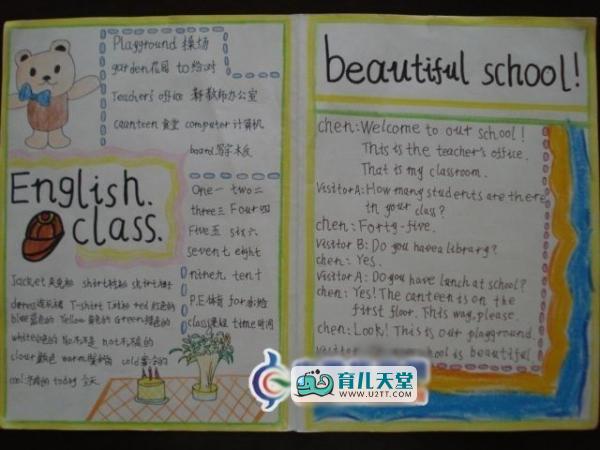 Playground 操场
garden花园 to给;对
Teacher's office 教师办公室
Caanteen 食堂 computer 计算机
board 写字板
English.
class.
One一 two二
three三 Four四
Five五 six六
seven七 eight
nine九 ten十
P.E.体育 for
class课 time时间
Jacket夹克衫 shirt
dress连衣裙 T-shirt T恤衫 red 红色的
blue蓝色的 Yellow 黄色的 Green绿色的
white白色的 No不;不是 not不;不是的
colour颜色 warm cold寒冷的
cool today 今天
beautiful school!
chen:Welcome to our school!
This is the teacher's office.
That is my classroom.
Visitor A:How many students are there
in your class?
chen: Forty-five.
Visitor B: Do you have a library?
chen: Yes.
Visitor A: Do you have lunch at school?
chen: Yes! The canteen is on the
first floor. This way, please.
chen: Look! This is our playground.
Visitor school is beautiful
育儿天堂
www.U2TT.com